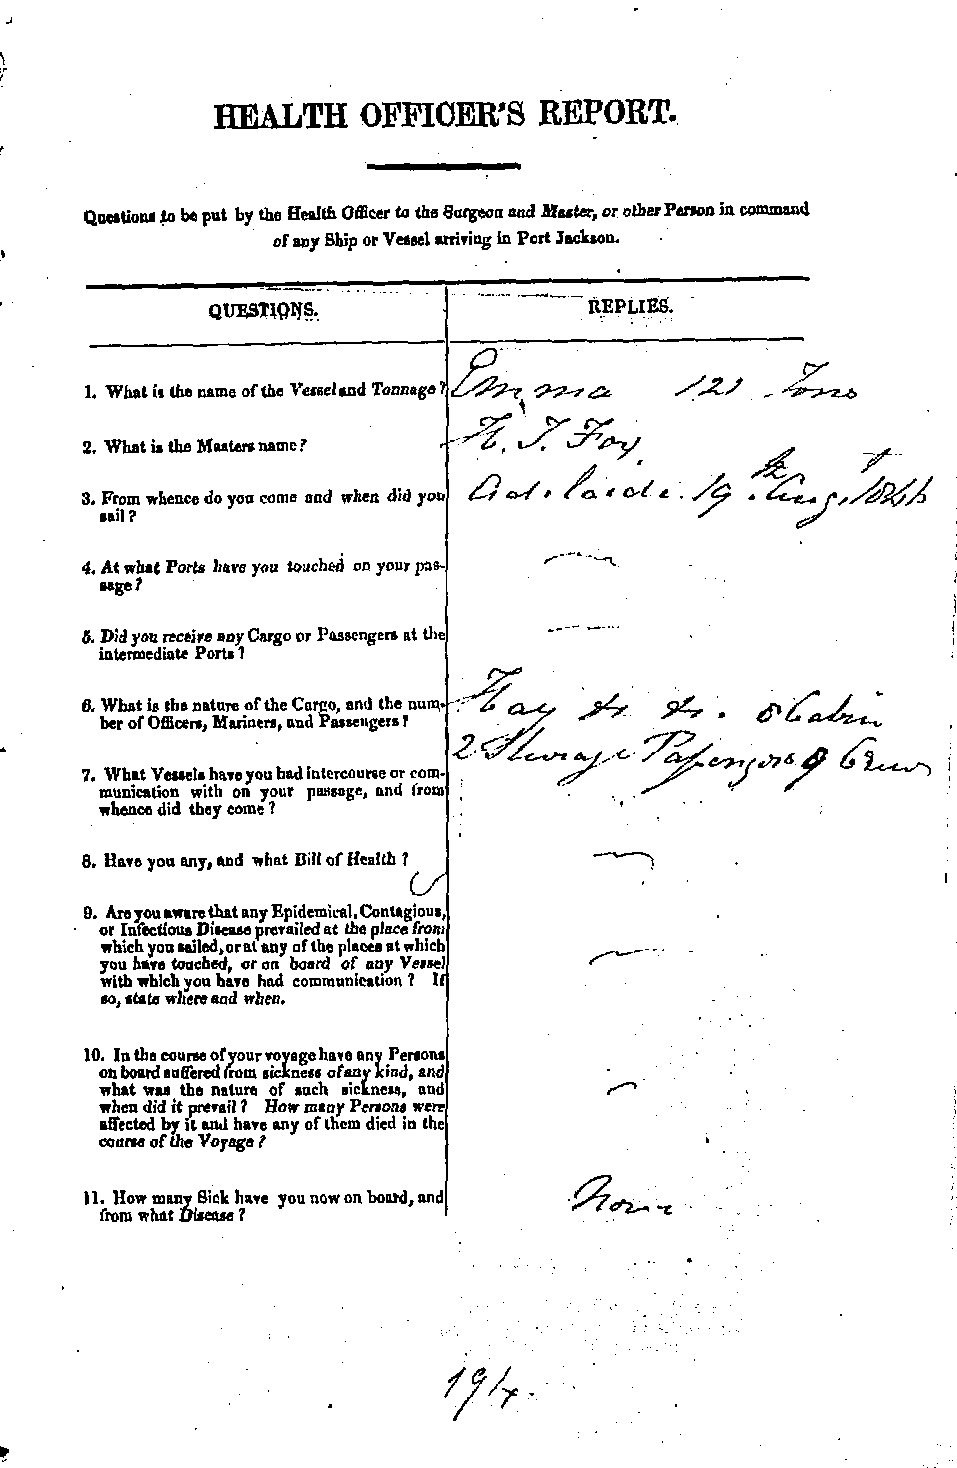 HEALTH OFFICER'S REPORT.
Questions to be put by the Health Officer to the Surgeon and Master, or other Person in command
of any Ship or Vessel arriving in Port Jackson.
QUESTIONS. REPLIES.
1. What is the name of the Vessel and Tonnage? Emma 121 Tons
2. What is the Masters name? H. T. Fox
3. From whence do you come and when did you Adelaide 19th Aug. 1846
sail?
4. At what Ports have you touched on your pas-
sage?
5. Did you receive any Cargo or Passengers at the
intermediate Ports?
6. What is the nature of the Cargo, and the num- Hay &c &c. 8 Cabin
ber of Officers, Mariners, and Passengers?
2 Steerage Passengers 9 Crew
7. What Vessels have you had intercourse or com-
munication with on your passage, and from
whence did they come?
8. Have you any, and what Bill of Health?
9. Are you aware that any Epidemical, Contagious,
or Infectious Disease prevailed at the place from
which you sailed, or at any of the places at which
you have touched, or on board of any Vessel
with which you have had communication? If
so, state where and when.
10. In the course of your voyage have any Persons
on board suffered from sickness of any kind, and
what was the nature of such sickness, and
when did it prevail? How many Persons were
affected by it and have any of them died in the
course of the Voyage?
11. How many Sick have you now on board, and None
from what Disease?
194.